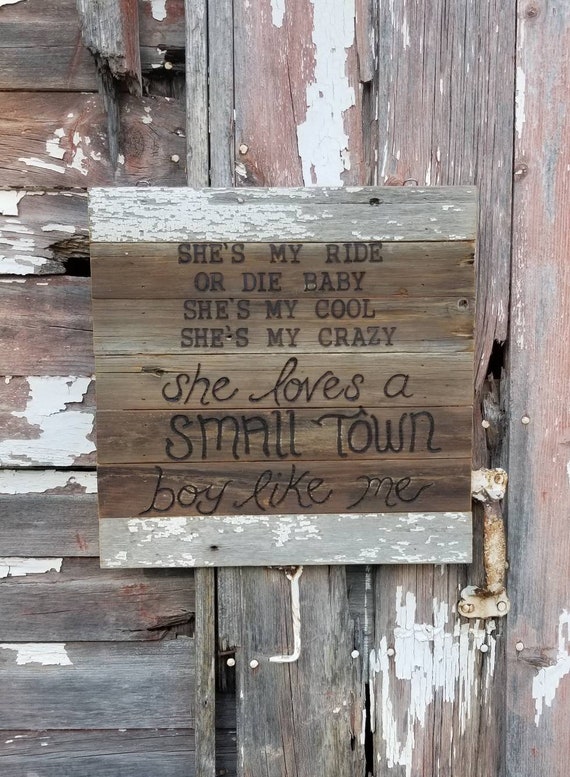 SHE'S MY RIDE
OR DIE BABY
SHE'S MY COOL
SHE'S MY CRAZY
she loves a
SMALL TOWN
boy like me